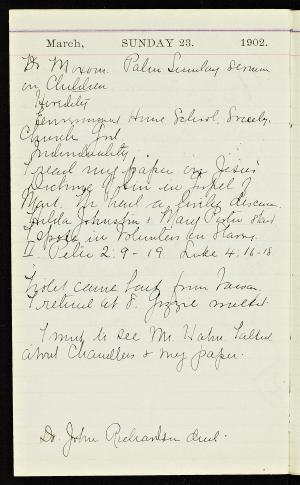 March, SUNDAY 23. 1902.
Dr Moxom. Palm Sunday sermon
on Children
Heredity
Environment Home School, Society.
Church God
Individuality
I read my paper on Jesus'
of Sin in Gospel of
Mark. We had a lively discus.
Hilda Johnston & Mary
I spoke in Volunteers on
II Peter 2:9-19 Luke 4:16-18
Violet came back from
I retired at 8.
I ran to see Mr. Hahn. Talked
about Chandlers & my paper.
Dr. John Richardson died.